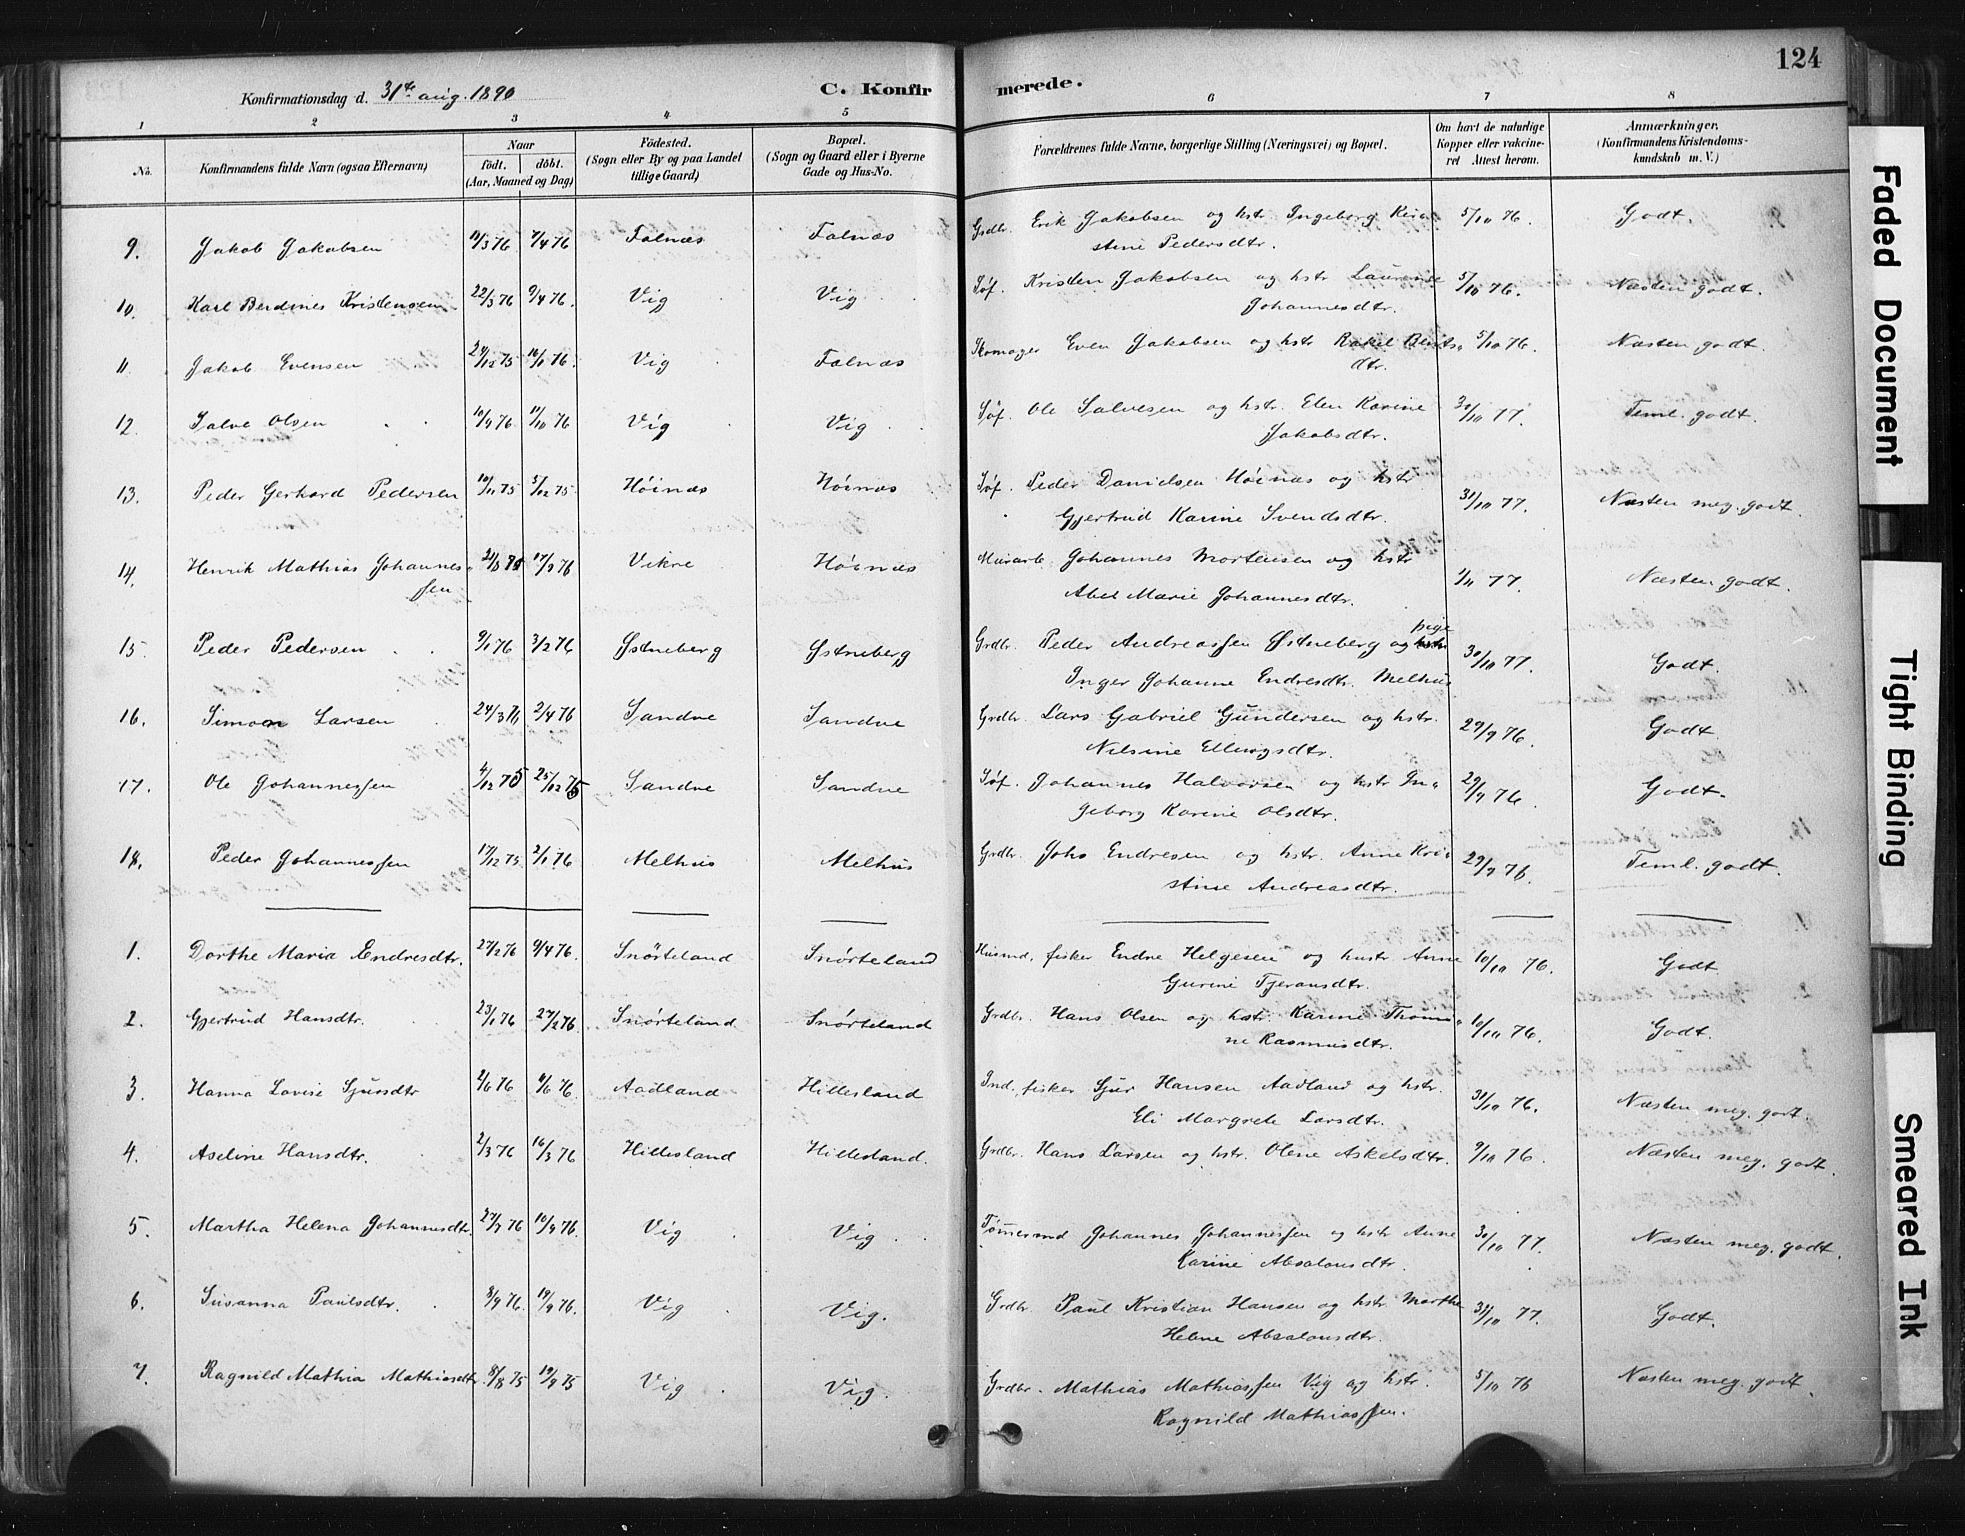 124
Konfirmationsdag d. 31te aug. 1890
C. Konfirmerede.
1 2 3 4 5 6 7 8
No.
Konfirmandens fulde Navn (ogsaa Efternavn)
Naar
født. døbt.
(Aar, Maaned og Dag)
Fødested.
(Sogn eller By og paa Landet
tillige Gaard)
Bopæl.
(Sogn og Gaard eller i Byerne
Gade og Hus-No.
Forældrenes fulde Navne, borgerlige Stilling (Næringsvei) og Bopæl.
Om havt de naturlige
Kopper eller vakcine-
ret Attest herom.
Anmærkninger.
(Konfirmandens Kristendoms-
kundskab m. V.)
9. Jakob Jakobsen 11/3 76 7/4 76 Falnæs Falnæs Grdbr. Erik Jakobsen og hstr. Ingeborg Kri- 5/10 76. Godt.
stine Pedersdtr.
10. Karl Berdines Kristensen 22/3 76 9/4 76. Vig Vig Søf. Kristen Jakobsen og hstr Laurense 5/10 76. Næsten godt.
Johannesdtr.
11. Jakob Evensen 24/12 75 16/1 76. Vig Falnæs Skomager Even Jakobsen og hstr Rakel Berits- 5/10 76. Næsten godt.
dtr.
12. Salve Olsen 10/9 76. 11/10 76 Vig Vig Søf. Ole Salvesen og hstr. Elen Karine 30/10 77. Teml. godt.
Jakobsdtr.
13. Peder Gerhard Pedersen 10/11 75 5/12 75. Høinæs Høinæs Søf. Peder Danielsen Høinæs og hstr 31/10 77. Næsten meg. godt.
Gjertrud Karine Svendsdtr.
14. Henrik Mathias Johannes- 17/9 76 Vikre Høinæs Murarb. Johannes Mortensen og hstr 1/11 77. Næsten godt.
sen Abel Marie Johannesdtr.
15 Peder Pedersen 9/1 76 3/2 76 Østneberg Østneberg Grdbr. Peder Andreassen Østneberg og pige 30/10 77. Godt.
Inger Johanne Endresdtr. Melhus
16. Simon Larsen 24/3 76 2/4 76 Sandve Sandve Grdbr. Lars Gabriel Gundersen og hstr. 29/9 76. Godt
Nilsine Ellingsdtr.
17. Ole Johannessen 4/12 75 25/12 75 Sandve Sandve Søf. Johannes Halvorsen og hstr In- 29/9 76. Godt.
geborg Karine Olsdtr.
18. Peder Johannessen 17/12 75. 2/1 76 Melhus Melhus Grdbr. Johs Endresen og hstr. Anne Kri- 29/9 76. Teml. godt.
stine Andreasdtr.
1. Dorthe Maria Endresdtr. 27/2 76 9/4 76. Snørteland Snørteland Husmd, fisker Endre Helgesen og hustr Anne 10/10 76. Godt
Gurine Tjeransdtr.
2. Gjertrud Hansdtr. 23/1 76 27/2 76 Snørteland Snørteland Grdbr. Hans Olsen og hstr. Karine Thomi- 10/10 76. Godt.
ne Rasmusdtr.
3. Hanna Lovise Sjursdtr 2/6 76 6/6 76 Aadland Hillesland Ind, fisker Sjur Hansen Aadland og hstr. 31/10 76. Næsten meg. godt.
Eli Margrete Larsdtr.
4. Aseline Hansdtr. 2/3 76 16/3 76 Hillesland Hillesland. Grdbr. Hans Larsen og hstr. Olene Askelsdtr. 9/10 76. Næsten meg. godt.
5. Martha Helena Johannesdtr. 27/7 76 10/9 76. Vig Vig Tømmermd Johannes Johannessen og hstr Anne 30/10 77. Næsten meg. godt.
Karine Absalonsdtr.
6. Susanna Paulsdtr. 8/9 76. 19/9 76. Vig Vig. Grdbr. Paul Kristian Hansen og hstr. Marthe 31/10 77. Godt.
Helene Absalonsdtr.
7. Ragnild Mathia Mathiasdtr. 8/8 75 19/9 75 Vig Vig. Grdbr. Mathias Mathiassen Vig og hstr. 5/10 76 Næsten meg. godt.
Ragnild Mathiassen.
Faded Document
Tight Binding
Smeared Ink